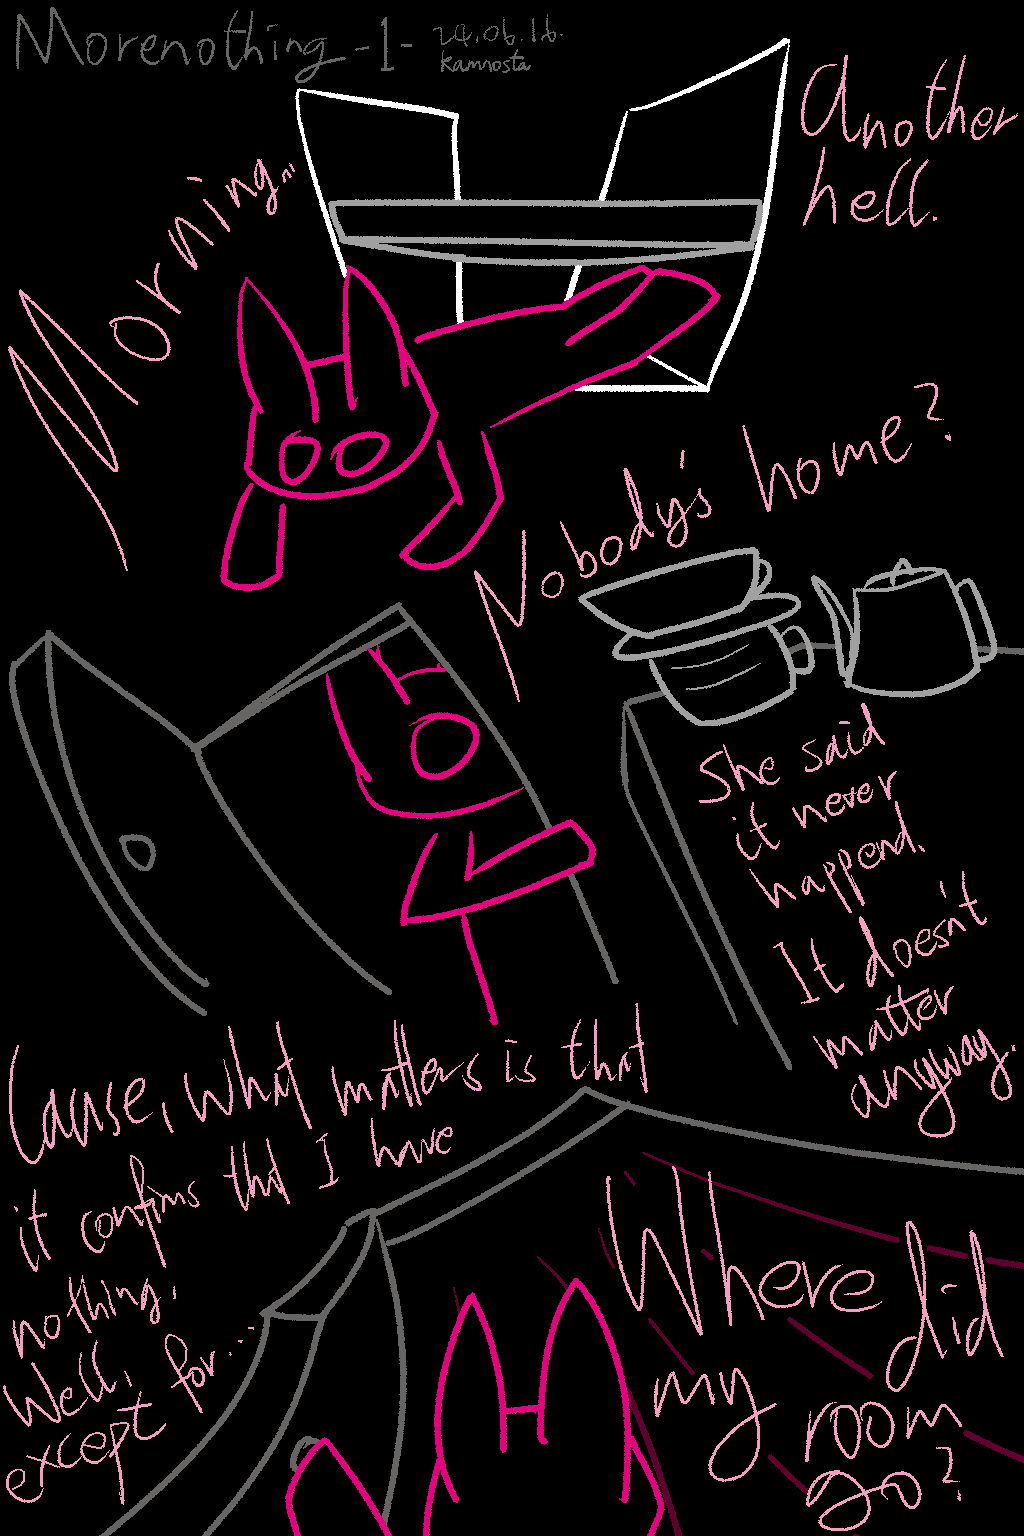 Morenothing -1- 24.06.16.
kamnosta
Morning..
Another
hell.
Nobody's home?
She said
it never
happend.
It doesn't
matter
anyway.
Cause, what matters is that
it confims that I have
nothing.
Well,
except for...
Where did
my room
go?